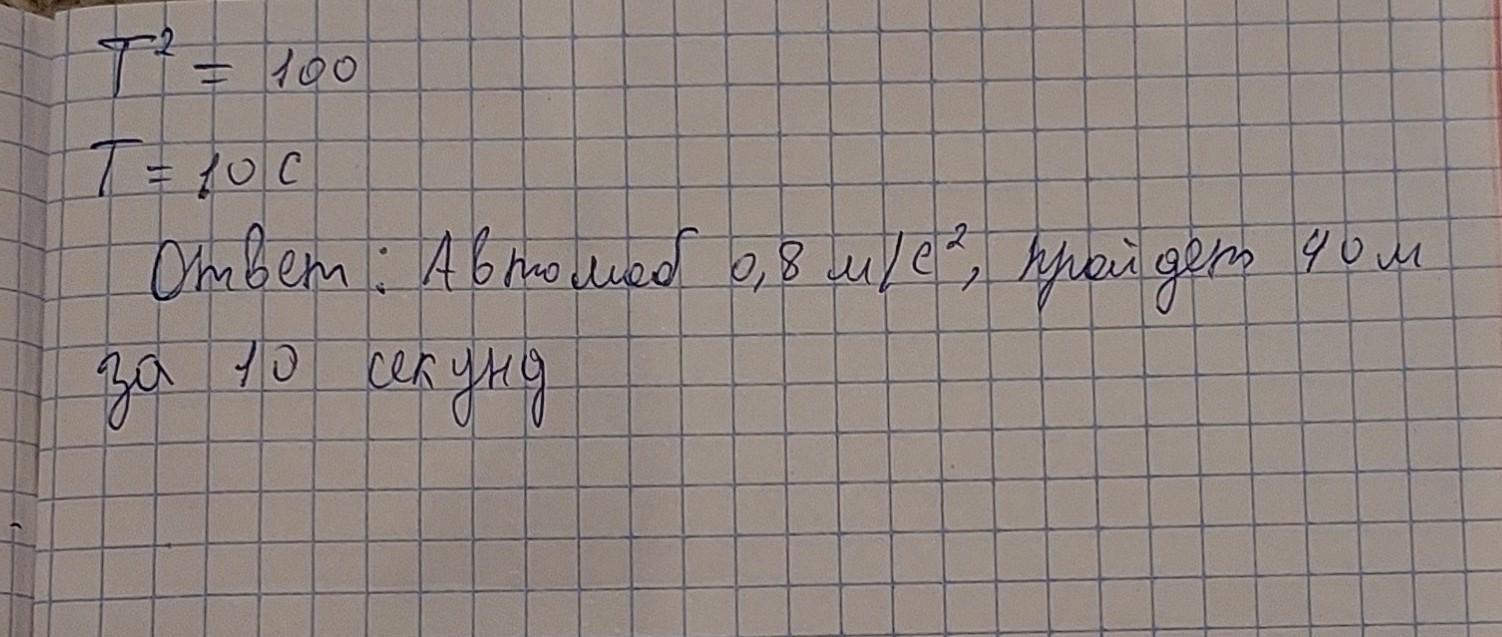 T² = 100
T = 10 с
Ответ: Автомоб 0,8 м/с², пройдет 40 м
за 10 секунд